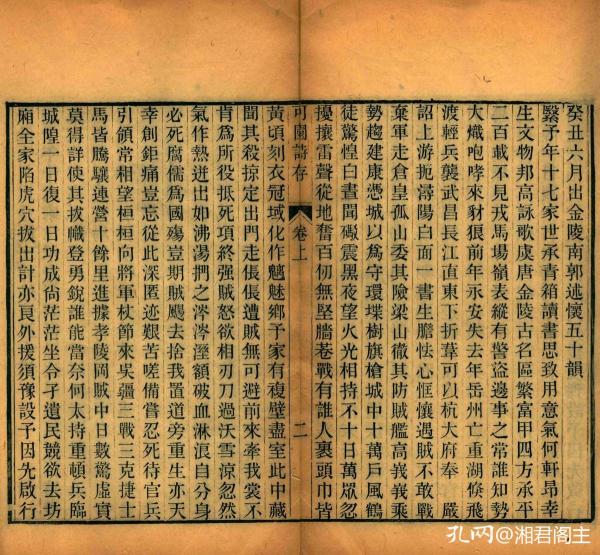 癸丑六月出金陵南郭述懷五十韻
繄予年十七家世承青箱讀書思致用意氣何軒昂幸
生文物邦高詠歌虞唐金陵古名區繁富甲四方承平
二百載不見戎馬場嶺表縱有警盜邊事之常誰知勢
大熾咆哮來豺狼前年永安失去年岳州亡重湖倏飛
渡輕兵襲武昌長江直東下折葦可以杭大府奉　嚴
詔上游扼潯陽白面一書生膽怯心恇懹遇賊不敢戰
棄軍走倉皇孤山委其險梁山徹其防賊艦高峩峩乘
勢趨建康憑城以爲守環堞樹旗槍城中十萬戶風鶴
徒驚惶白晝聞礮震黑夜望火光相持不十日萬眾忽
擾攘雷聲從地奮百仞無堅牆巷戰有誰人裹頭巾皆
可園詩存　卷上　二
黃頃刻衣冠域化作魑魅鄉予家有複壁盡室此中藏
聞其殺掠定出門走倀倀遭賊無可避前來牽我裳不
肯爲所役抵死項終强賊怒欲相刃刀過沃雪涼忽然
氣作熱迸出如沸湯捫之涔涔溼額破血淋浪自分身
必死腐儒爲國殤豈期賊颺去拾我置道旁重生亦天
幸創鉅痛豈忘從此深匿迹艱苦嗟備嘗忍死待官兵
引領常相望桓桓向將軍杖節來吳疆三戰三克捷士
馬皆騰驤連營十餘里進據孝陵岡賊中日數驚虛實
莫得詳使其拔幟登勇銳誰能當奈何太持重頓兵臨
城隍一日復一日功成尙茫茫坐令孑遺民競欲去坊
廂全家陷虎穴拔出計亦良外援須豫設予因先啟行
孔网@湘君阁主